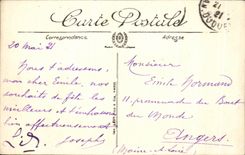 Carte Postale
Correspondance
Adresse
20 Mai 21
Nous t'adressons,
mon cher Emile nos
souhaits de fête les
meilleurs et t'embrassons
bien affectueusement
Joseph
Monsieur
Emile Normand
11, promenade du Bout
du Monde
Angers
Maine-et-Loire